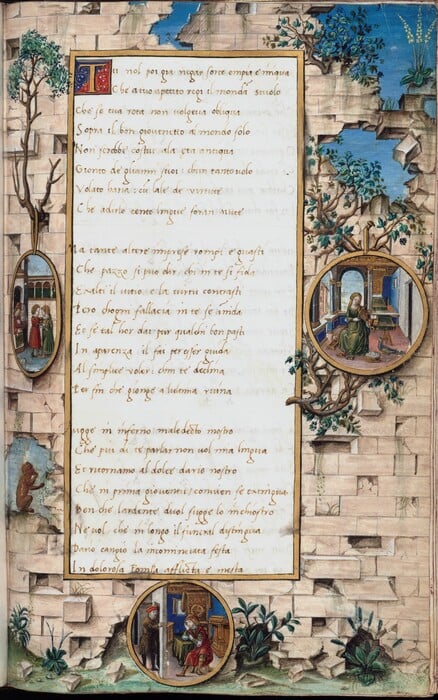 Tu nol poi gia negar sorte empia e iniqua
Che a tuo appetito regi il mondan stuolo
Che se tua rota non volgeva obliqua
Sopra il bon giovenetto al mondo solo
Non serebbe costui ala eta antiqua
Gionto de quanti
Volato haria cū lale de virtute
Che a dirlo cento lingue foran mute
Ma tante altere imprese rompi e guasti
Che pazzo si puo dir chi in te si fida
Exalti il vitio e la virtu contrasti
Pero chogni fallacia in te se anida
Et se tal hor dai pur qualchi bon pasti
In aparenza il fai per esser guida
Al simplice voler chin te declina
Per fin che gionge a lultima ruina
Fugge in inferno maledecto mostro
Che piu di te parlar non vol mia lingua
Et ritornamo al dolce dario nostro
Che in prima gioventu conven se extingua
Ben che lardente duol sugge lo inchiostro
Ne vol che in longo il funeral distingua
Dario cangio la incominciata festa
In dolorosa Pompa afflicta e mesta